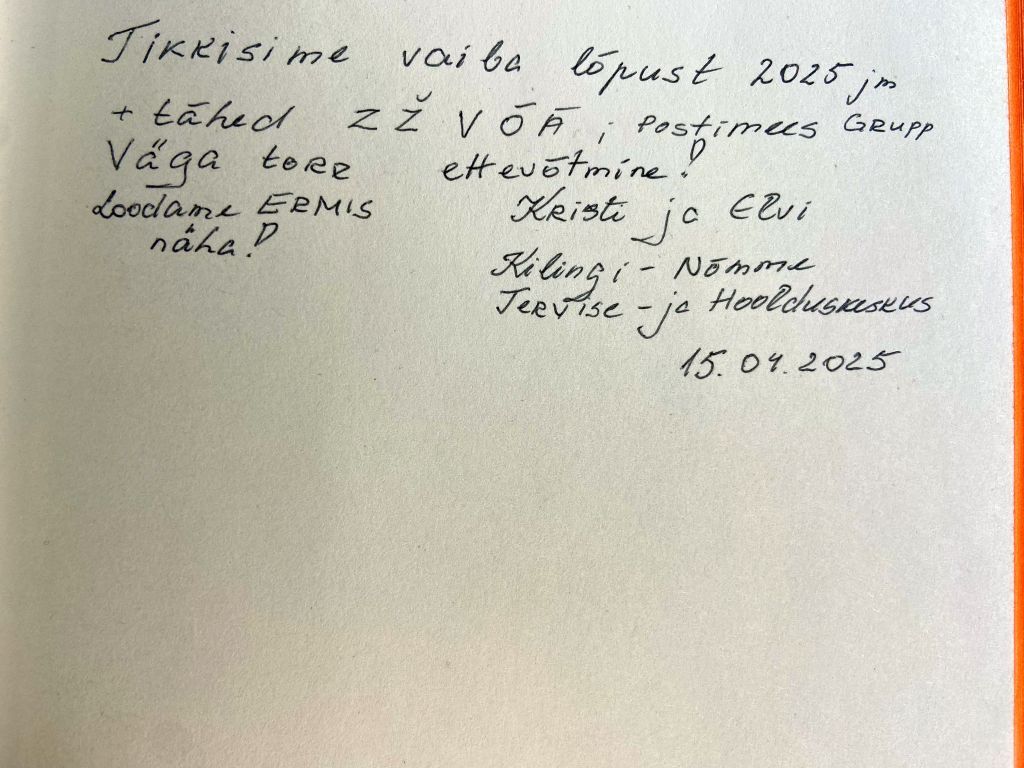 Tikkisime vaiba lõpust 2025 jm
+ tähed Z Ž V Õ Ä, Postimees GRUPP
Väga torr ettevõtmine!
Loodame ERMIS näha!
Kristi ja Elvi
Kilingi-Nõmme
Tervise-ja Hoolduskeskus
15.04.2025